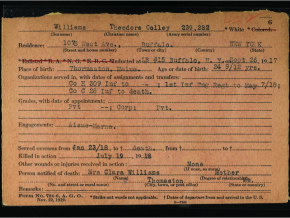 6
Williams Theodore Colley 239,252 *White *Colored.
(Surname) (Christian name) (Army serial number)
Residence: Ave., Buffalo, NEW YORK
(Street and house number) (Town or city) (County) (State)
*Enlisted *R. A. *N. G. *E. R. C. *Inducted at LB #13 Buffalo, N. Y. Sept 26, 1917
Place of birth: Thomaston, Maine. Age or date of birth: 24 yrs
Organizations served in, with dates of assignments and transfers:
Co E 309 Inf to ; 1st Rep Bat to May 7/18;
Co C 28 Inf to death.
Grades, with date of appointment:
Pvt ; Corp; Pvt.
Engagements:
Aisne-Marne.
Served overseas from Jan 23/18 to † death. from † to †
Killed in action July 18, 1918
Other wounds or injuries received in action: None
Person notified of death: Mrs Clara Williams Mother
(Name) (Degree of relationship)
Thomaston Me.
(No. and street or rural route) (City, town, or post office) (State or country)
Form No. 724-2, A. G. O.
Nov. 22, 1919.
*Strike out words not applicable. † Dates of departure from and arrival in the U. S.